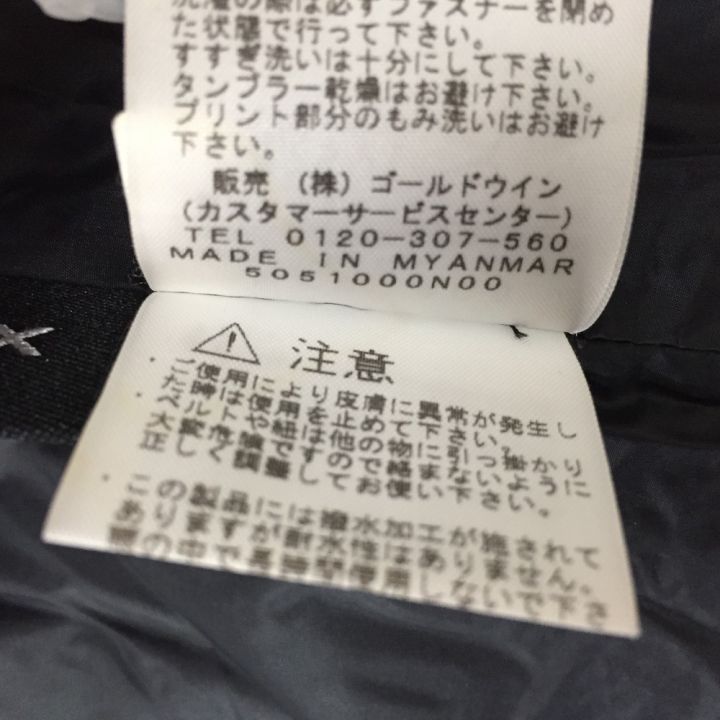 洗濯の際は必ずファスナーを閉め
た状態で行って下さい。
すすぎ洗いは十分にして下さい。
タンブラー乾燥はお避け下さい。
プリント部分のもみ洗いはお避け
下さい。
販売 (株) ゴールドウイン
(カスタマーサービスセンター)
TEL 0120-307-560
MADE IN MYANMAR
5051000N00
注意
・ご使用により皮膚に異常が発生し
た時は使用を止めて下さい。
・ベルトや紐は他の物に引っ掛かり
大変危険ですので絡まないように
正しく調整してお使い下さい。
・この製品には撥水加工が施されて
ありますが耐水性はありません。
の中で長時間使用しないで下さ